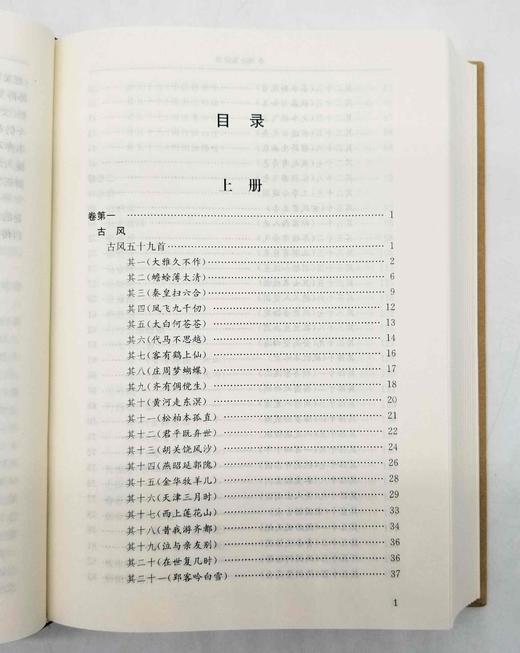 目录
上册
卷第一 1
古风
古风五十九首 1
其一(大雅久不作) 2
其二(蟾蜍薄太清) 6
其三(秦皇扫六合) 9
其四(凤飞九千仞) 12
其五(太白何苍苍) 13
其六(代马不思越) 14
其七(客有鹤上仙) 16
其八(庄周梦蝴蝶) 17
其九(齐有倜傥生) 18
其十(黄河走东溟) 20
其十一(松柏本孤直) 21
其十二(君平既弃世) 22
其十三(胡关饶风沙) 24
其十四(燕昭延郭隗) 26
其十五(金华牧羊儿) 28
其十六(天津三月时) 29
其十七(西上莲花山) 33
其十八(昔我游齐都) 34
其十九(泣与亲友别) 36
其二十(在世复几时) 36
其二十一(郢客吟白雪) 37
1